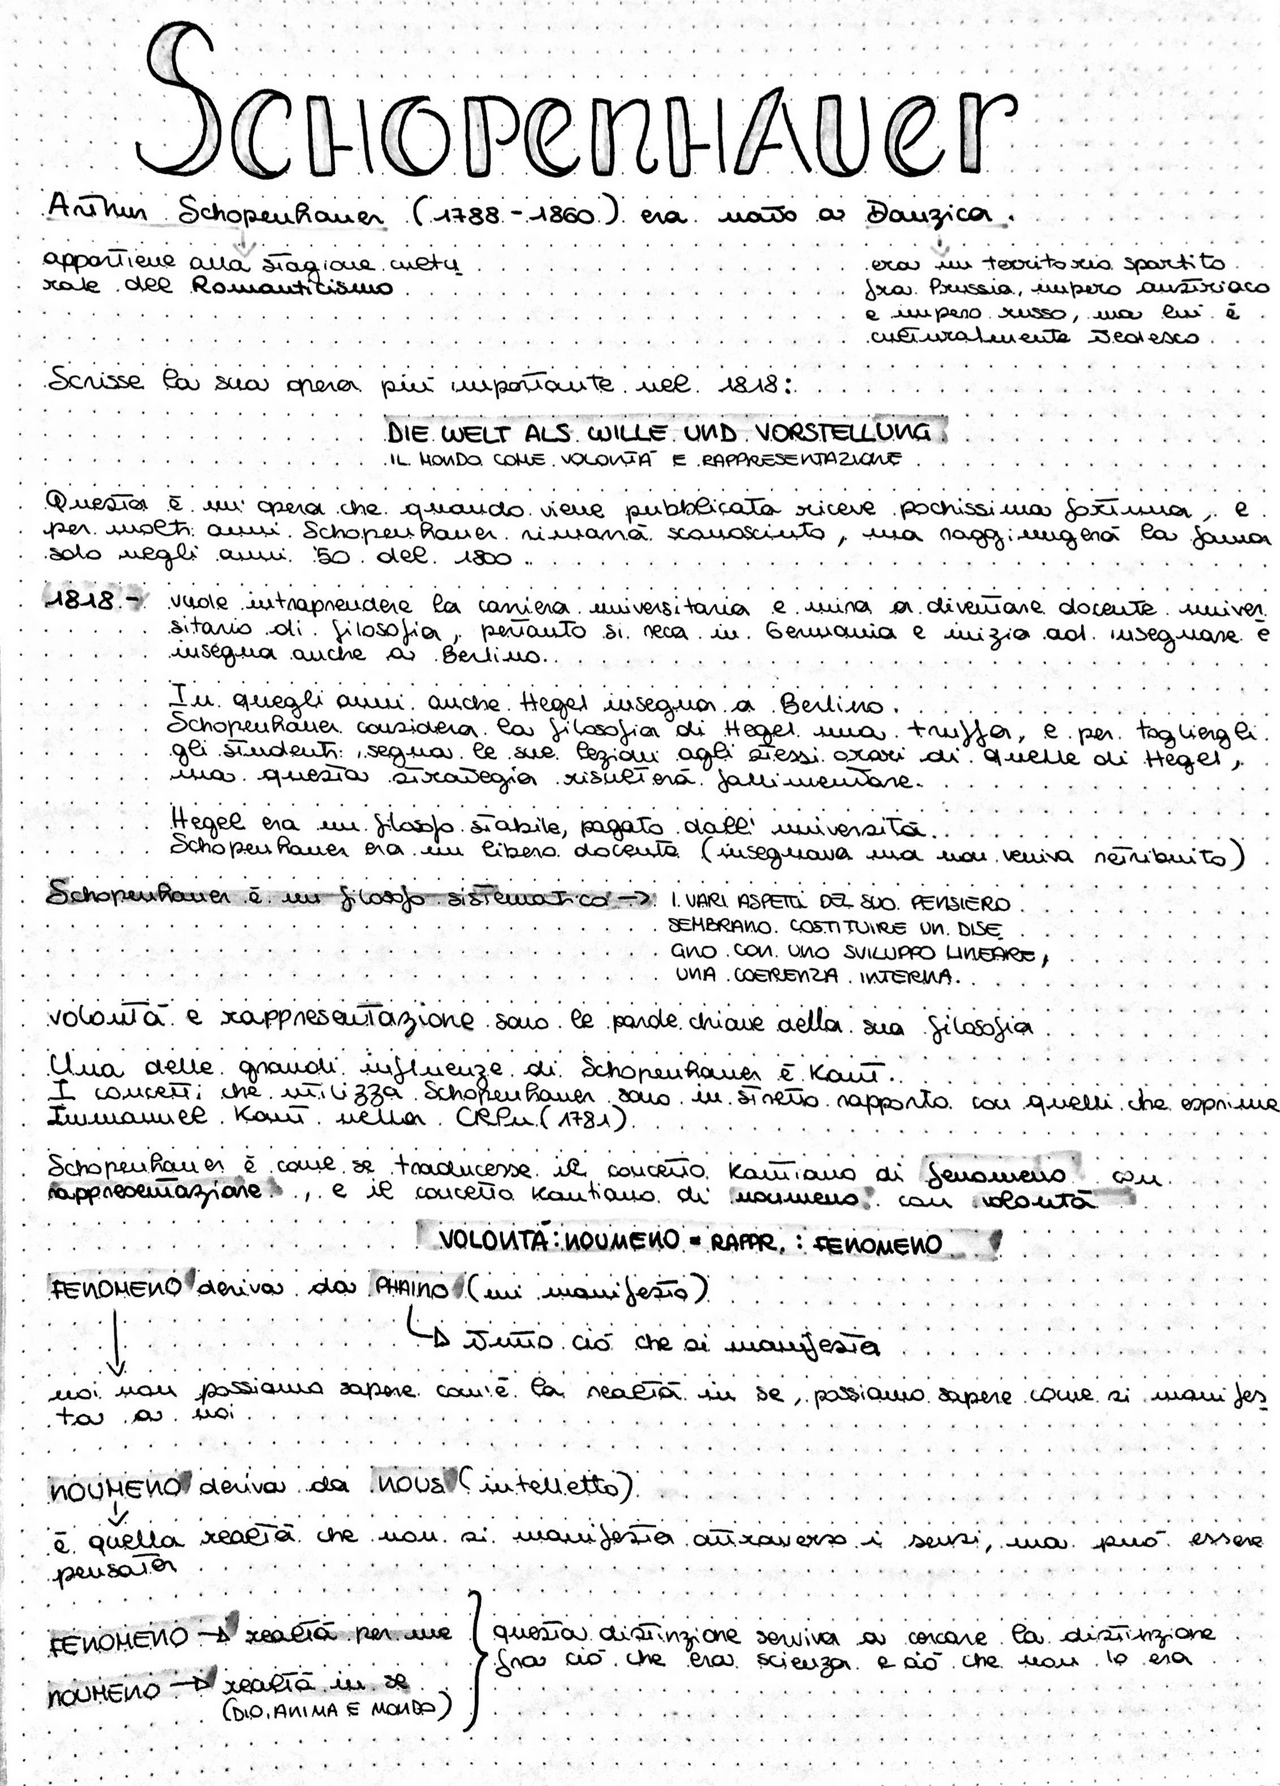 SCHOPENHAUER
Arthur Schopenhauer (1788-1860) era nato a Danzica.
appartiene alla stagione cultu
rale del Romanticismo
era un territorio spartito
fra Prussia, impero austriaco
e impero russo, ma lui è
culturalmente tedesco
Scrisse la sua opera più importante nel 1818:
DIE WELT ALS WILLE UND VORSTELLUNG
IL MONDO COME VOLONTÀ E RAPPRESENTAZIONE
Questa è un'opera che quando viene pubblicata riceve pochissima fortuna, e
per molti anni Schopenhauer rimarrà sconosciuto, ma raggiungerà la fama
solo negli anni '50 del 1800.
1818- vuole intraprendere la carriera universitaria e mira a diventare docente univer
sitario di filosofia, pertanto si reca in Germania e inizia ad insegnare e
insegna anche a Berlino.
In quegli anni anche Hegel insegna a Berlino.
Schopenhauer considera la filosofia di Hegel una truffa, e per togliergli
gli studenti segna le sue lezioni agli stessi orari di quelle di Hegel,
ma questa strategia risulterà fallimentare.
Hegel era un filosofo stabile, pagato dall'università.
Schopenhauer era un libero docente (insegnava ma non veniva retribuito)
Schopenhauer è un filosofo sistematico → I VARI ASPETTI DEL SUO PENSIERO
SEMBRANO COSTITUIRE UN DISE
GNO CON UNO SVILUPPO LINEARE,
UNA COERENZA INTERNA.
volontà e rappresentazione sono le parole chiave della sua filosofia
Una delle grandi influenze di Schopenhauer è Kant.
I concetti che utilizza Schopenhauer sono in stretto rapporto con quelli che esprime
Immanuel Kant nella CRPu (1781)
Schopenhauer è come se traducesse il concetto kantiano di fenomeno con
rappresentazione, e il concetto kantiano di noumeno con volontà
VOLONTÀ : NOUMENO = RAPPR. : FENOMENO
FENOMENO deriva da PHAINO (mi manifesto)
→ tutto ciò che si manifesta
noi non possiamo sapere com'è la realtà in se, possiamo sapere come si manifes
ta a noi
NOUMENO deriva da NOUS (intelletto)
è quella realtà che non si manifesta attraverso i sensi, ma può essere
pensata
FENOMENO → realtà per me
NOUMENO → realtà in se
(DIO, ANIMA E MONDO)
questa distinzione serviva a cercare la distinzione
fra ciò che era scienza e ciò che non lo era